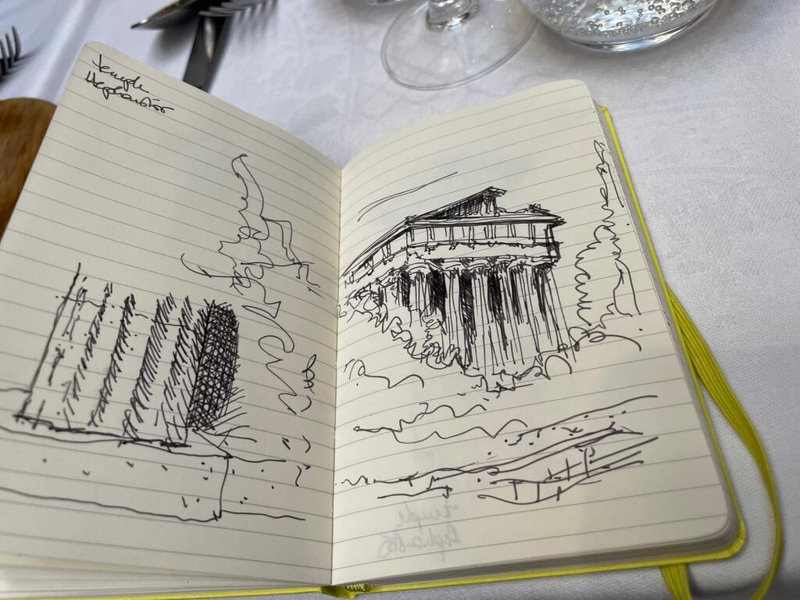 Temple
Hephaistos